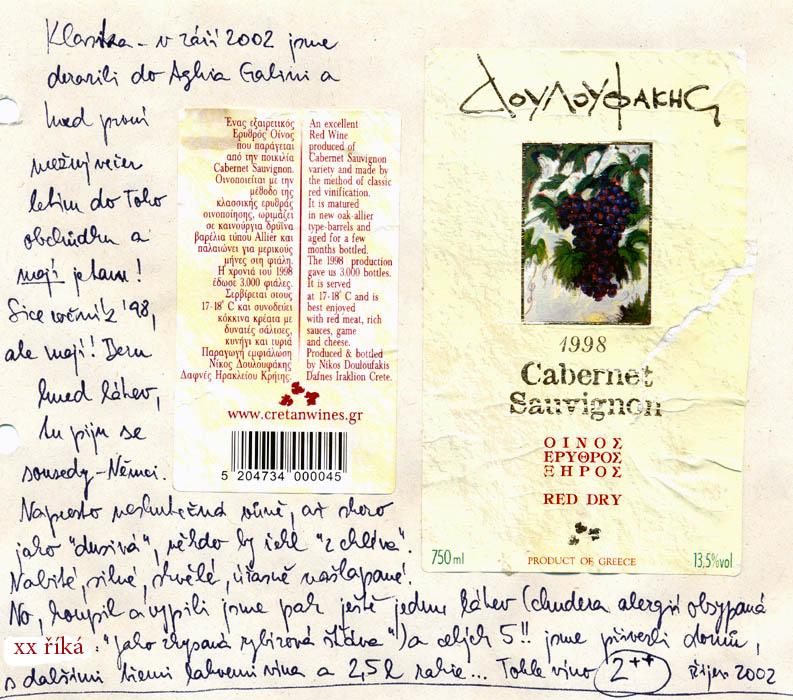 Klasika - v září 2002 jsme
dorazili do Aghia Galini a
hned první
možný večer
letím do Toho
obchůdku a
mají je tam!
Sice ročník '98,
ale mají! Beru
hned láhev,
tu piju se
sousedy - Němci.
Naprosto neskutečná vůně, až skoro
jako "dusivá", někdo by řekl "z chlíva".
Nabité, silné, skvělé, úžasně našlapané.
No, koupil a vypili jsme pak ještě jednu láhev (chudera alergií obsypaná
xx říká "jako zkysaná rybízová šťáva") a celých 5!! jsme přivezli domů,
s dalšími lahvemi vína a 2,5l rakie... Tohle víno 2++ říjen 2002
Ένας εξαιρετικός
Ερυθρός Οίνος
που παράγεται
από την ποικιλία
Cabernet Sauvignon.
Οινοποιείται με την
μέθοδο της
κλασικής ερυθράς
οινοποίησης, ωριμάζει
σε καινούργια δρύϊνα
βαρέλια τύπου Allier και
παλαιώνει για μερικούς
μήνες στη φιάλη.
Η χρονιά του 1998
έδωσε 3.000 φιάλες.
Σερβίρεται στους
17-18° C και συνοδεύει
κόκκινα κρέατα με
δυνατές σάλτσες,
κυνήγι και τυριά
Παραγωγή εμφιάλωση
Νίκος Δουλουφάκης
Δαφνές Ηρακλείου Κρήτης.
An excellent
Red Wine
produced of
Cabernet Sauvignon
variety and made by
the method of classic
red vinification.
It is matured
in new oak-allier
type-barrels and
aged for a few
months bottled.
The 1998 production
gave us 3.000 bottles.
It is served
at 17-18° C and is
best enjoyed
with red meat, rich
sauces, game
and cheese.
Produced & bottled
by Nikos Douloufakis
Dafnes Iraklion Crete.
www.cretanwines.gr
5 204734 000045
ΔΟΥΛΟΥΦΑΚΗς
1998
Cabernet
Sauvignon
ΟΙΝΟΣ
ΕΡΥΘΡΟΣ
ΞΗΡΟΣ
RED DRY
750 ml
PRODUCT OF GREECE
13,5%vol